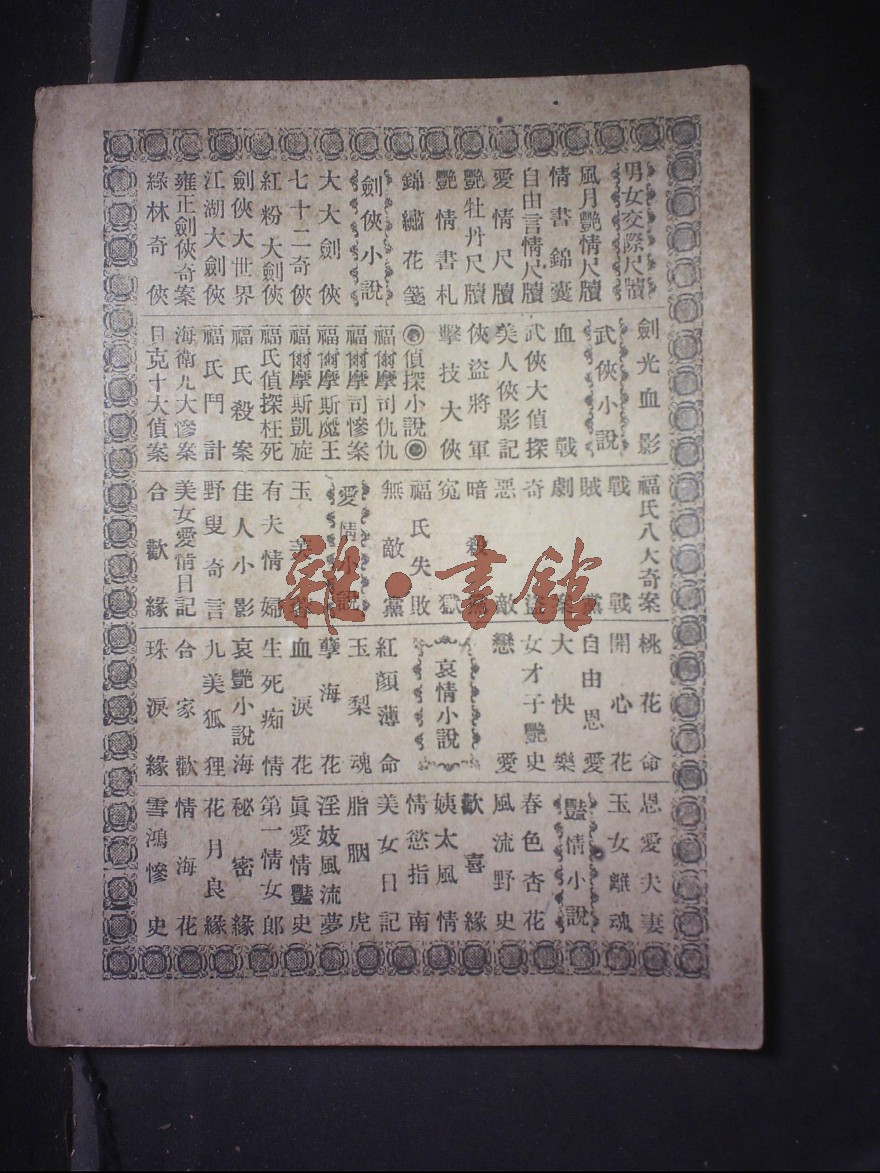 男女交際尺牘
風月艷情尺牘
情書錦囊
自由言情尺牘
愛情尺牘
艷牡丹尺牘
艷情書札
錦繡花箋
劍俠小說
大大劍俠
七十二奇俠
紅粉大劍俠
劍俠大世界
江湖大劍俠
雍正劍俠奇案
綠林奇俠
劍光血影
武俠小說
血戰
武俠大偵探
美人俠影記
俠盜將軍
擊技大俠
◎偵探小說◎
福爾摩司仇仇
福爾摩司慘案
福爾摩斯魔王
福爾摩斯凱旋
福氏偵探枉死
福氏殺案
福氏鬥計
海衛九大慘案
日克十大偵案
福氏八大奇案
戰戰
賊黨
劇案
奇盜
惡敵
暗殺
冤獄
福氏失敗
無敵黨
愛情小說
玉美
有夫情婦
佳人小影
野叟奇言
美女愛情日記
合歡緣
桃花命
開心花
自由恩愛
大快樂
女才子艷史
戀愛
哀情小說
紅顏薄命
玉梨魂
孽海花
血淚花
生死痴情
哀艷小說海
九美狐狸
合家歡
珠淚緣
恩愛夫妻
玉女離魂
豔情小說
春色杏花
風流野史
歡喜緣
姨太風情
情慾指南
美女日記
脂胭虎
淫妓風流夢
眞愛情豔史
第一情女郎
秘密緣
花月良緣
情海花
雪鴻慘史
雜·書館